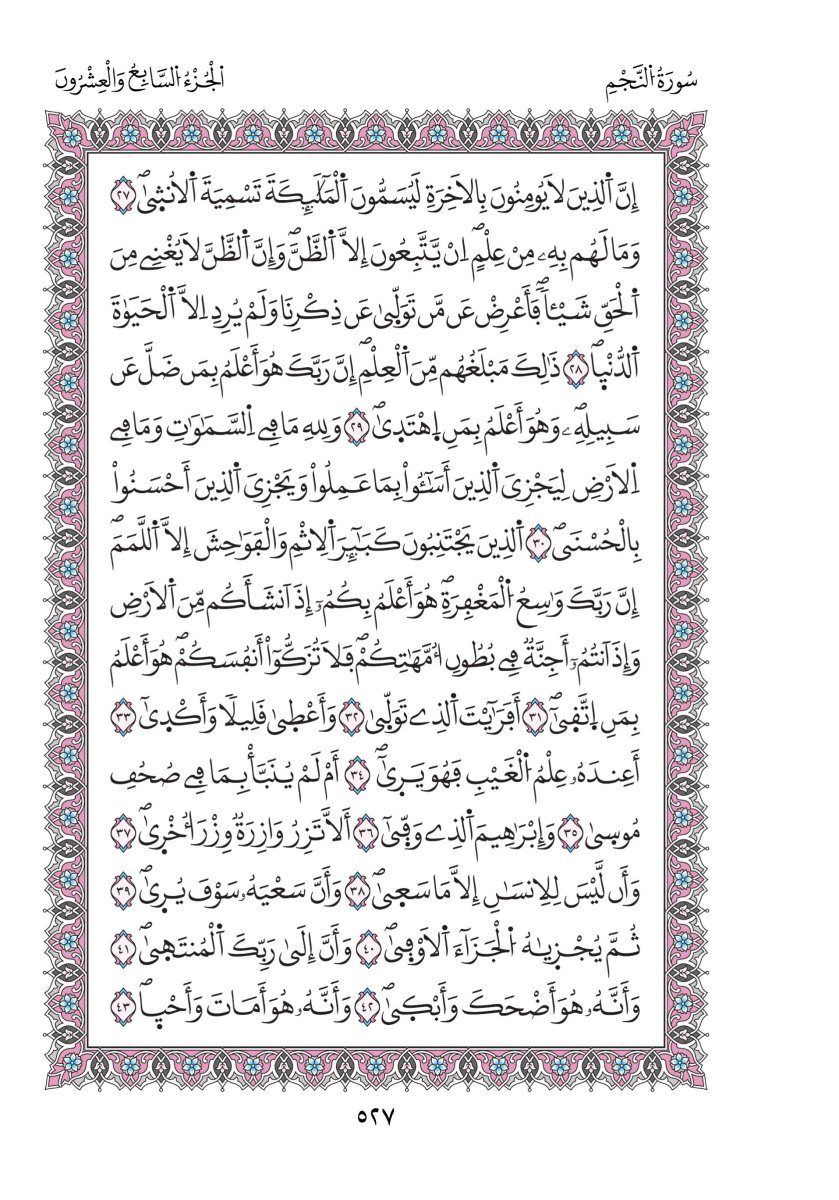 سُورَةُ النَّجْمِ
الْجُزْءُ السَّابِعُ وَالْعِشْرُونَ
إِنَّ اَ۬لذِينَ لَا يُومِنُونَ بِالَاخِرَةِ لَيُسَمُّونَ اَ۬لْمَلَٰٓئِكَةَ تَسْمِيَةَ اَ۬لُانث۪ىٰۖ ٢٧
وَمَا لَهُم بِهِۦ مِنْ عِلْمٍۖ اِنْ يَّتَّبِعُونَ إِلَّا اَ۬لظَّنَّۖ وَإِنَّ اَ۬لظَّنَّ لَا يُغْنِے مِنَ
اَ۬لْحَقِّ شَيْـٔاٗۖ فَأَعْرِضْ عَن مَّن تَوَلّ۪ىٰ عَن ذِكْرِنَا وَلَمْ يُرِدِ اِلَّا اَ۬لْحَيَوٰةَ
اَ۬لدُّنْي۪اۖ ٢٨ ذَٰلِكَ مَبْلَغُهُم مِّنَ اَ۬لْعِلْمِۖ إِنَّ رَبَّكَ هُوَ أَعْلَمُ بِمَن ضَلَّ عَن
سَبِيلِهِۦۖ وَهُوَ أَعْلَمُ بِمَنِ اِ۪هْتَد۪ىٰۖ ٢٩ وَلِلهِ مَا فِے اِ۬لسَّمَٰوَٰتِ وَمَا فِے
اِ۬لَارْضِ لِيَجْزِيَ اَ۬لذِينَ أَسَٰٓـُٔواْ بِمَا عَمِلُواْ وَيَجْزِيَ اَ۬لذِينَ أَحْسَنُواْ
بِالْحُسْنَىۖ ٣٠ اَ۬لذِينَ يَجْتَنِبُونَ كَبَٰٓئِرَ اَ۬لِاثْمِ وَالْفَوَٰحِشَ إِلَّا اَ۬للَّمَمَۖ
إِنَّ رَبَّكَ وَٰسِعُ اُ۬لْمَغْفِرَةِۖ هُوَ أَعْلَمُ بِكُمُۥٓ إِذَ اَنشَأَكُم مِّنَ اَ۬لَارْضِ
وَإِذَ اَنتُمُۥٓ أَجِنَّةٞ فِے بُطُونِ أُمَّهَٰتِكُمْۖ فَلَا تُزَكُّوٓاْ أَنفُسَكُمْۖ هُوَ أَعْلَمُ
بِمَنِ اِ۪تَّق۪ىٰٓۖ ٣١ أَفَرَٰٓيْتَ اَ۬لذِے تَوَلّ۪ىٰ ٣٢ وَأَعْط۪ىٰ قَلِيلاٗ وَأَكْد۪ىٰٓۖ ٣٣
أَعِندَهُۥ عِلْمُ اُ۬لْغَيْبِ فَهُوَ يَر۪ىٰٓۖ ٣٤ أَمْ لَمْ يُنَبَّأْ بِمَا فِے صُحُفِ
مُوس۪ىٰ ٣٥ وَإِبْرَٰهِيمَ اَ۬لذِے وَفّ۪ىٰٓ ٣٦ أَلَّا تَزِرُ وَازِرَةٞ وِزْرَ أُخْر۪ىٰۖ ٣٧
وَأَن لَّيْسَ لِلِانسَٰنِ إِلَّا مَا سَع۪ىٰۖ ٣٨ وَأَنَّ سَعْيَهُۥ سَوْفَ يُر۪ىٰۖ ٣٩
ثُمَّ يُجْز۪يٰهُ اُ۬لْجَزَآءَ اَ۬لَاوْف۪ىٰۖ ٤٠ وَأَنَّ إِلَىٰ رَبِّكَ اَ۬لْمُنتَه۪ىٰۖ ٤١
وَأَنَّهُۥ هُوَ أَضْحَكَ وَأَبْك۪ىٰۖ ٤٢ وَأَنَّهُۥ هُوَ أَمَاتَ وَأَحْي۪اۖ ٤٣
٥٢٧